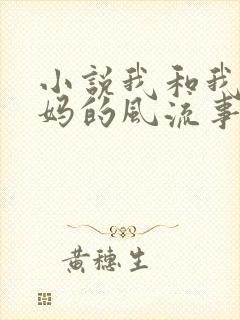 小說我和我
妈的風流事
黃穗生